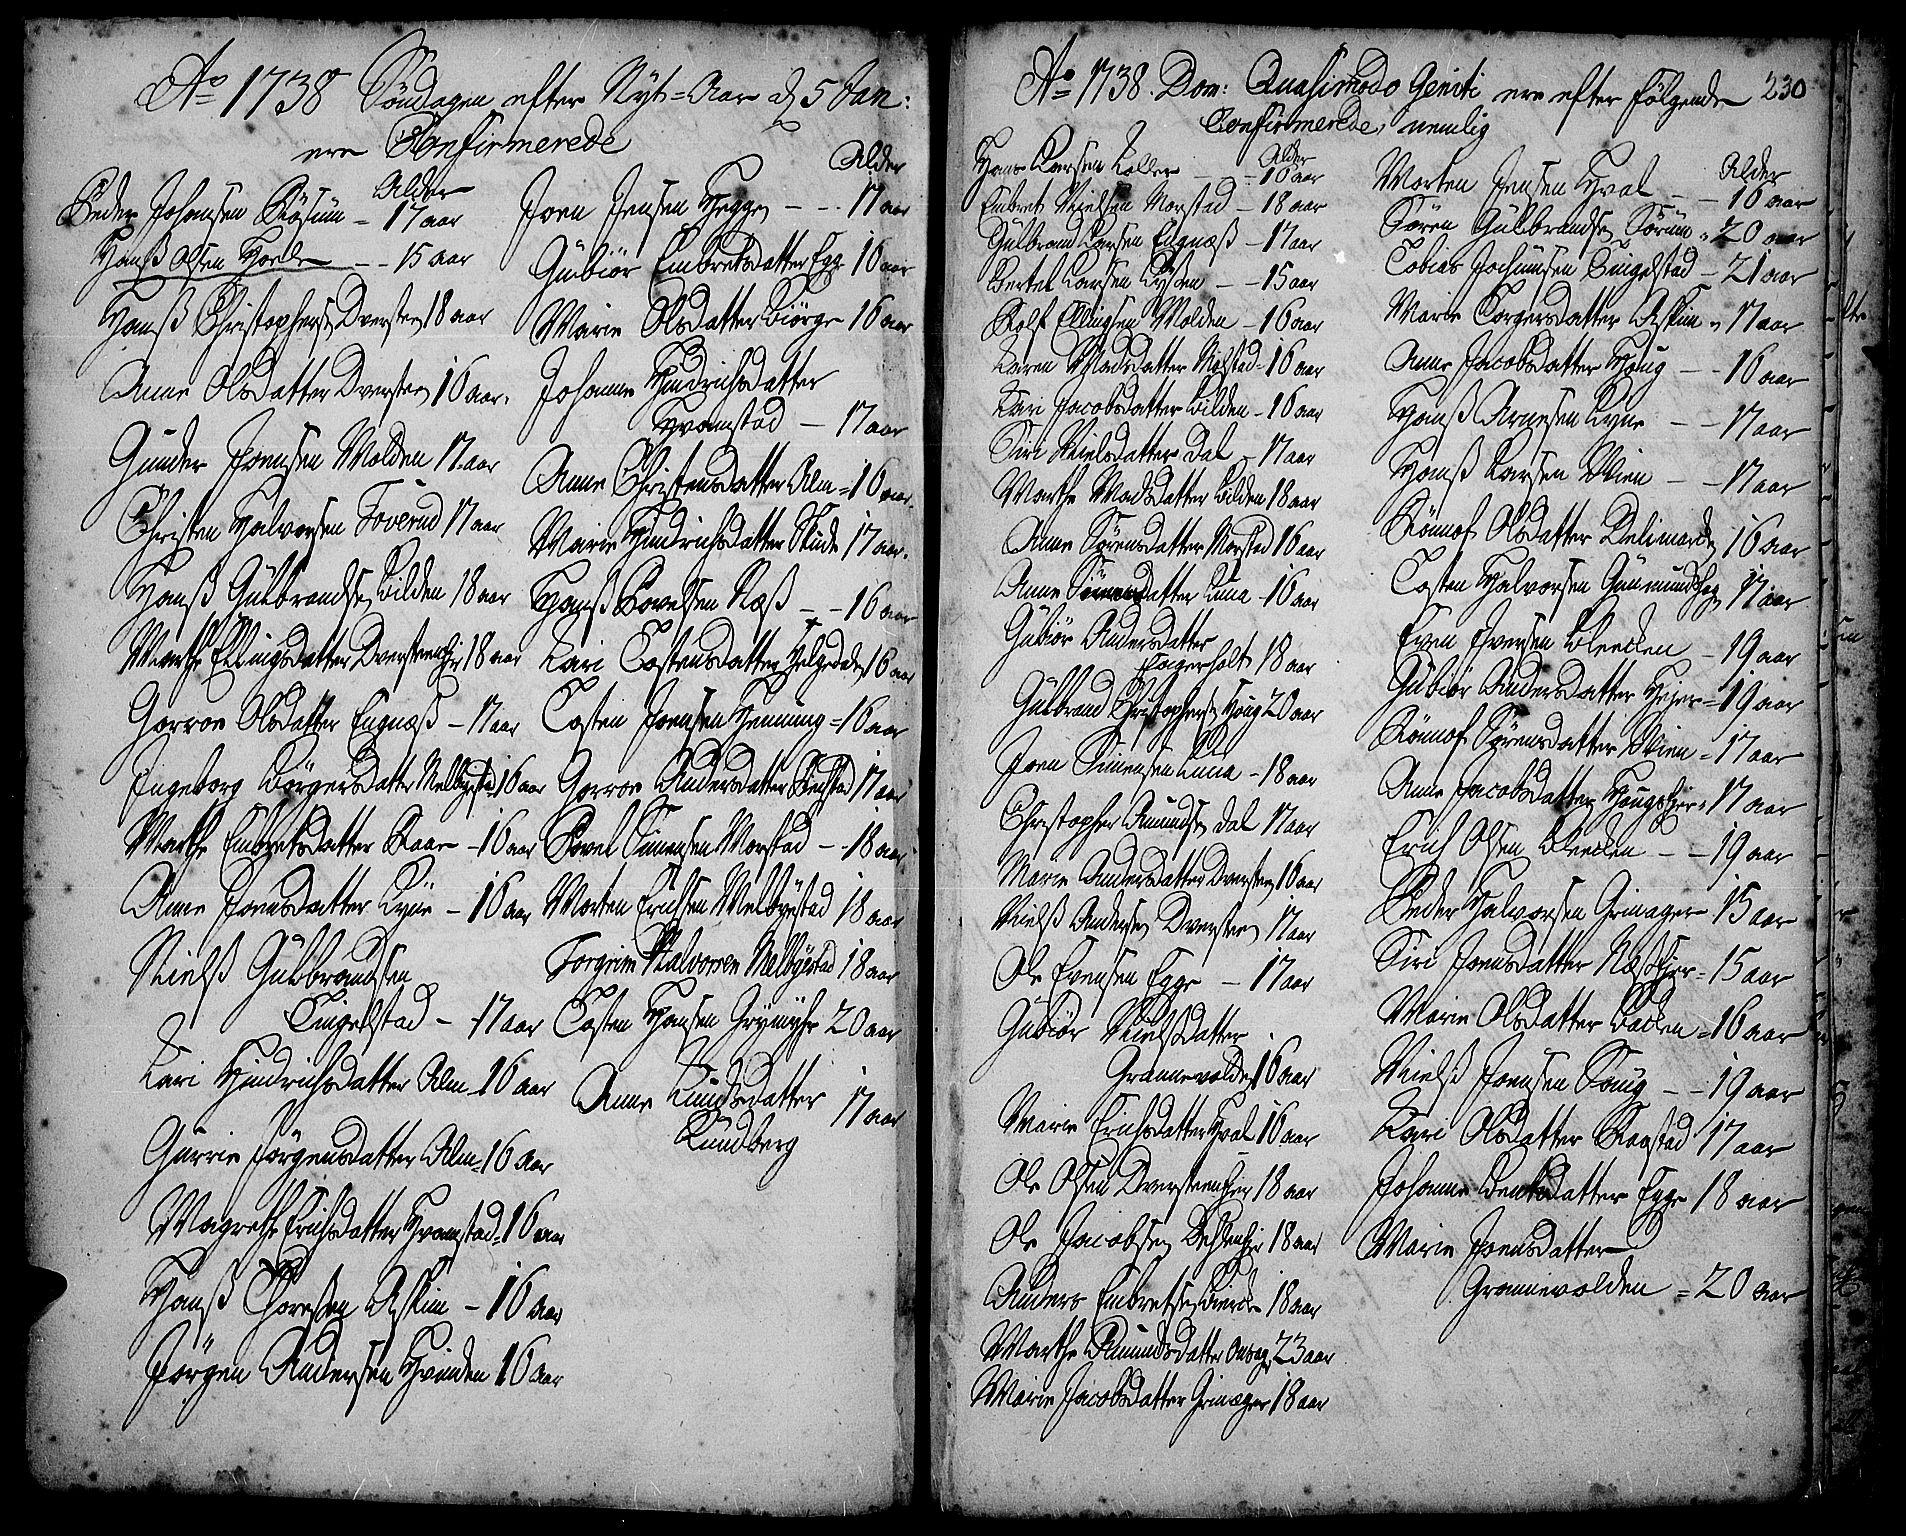 Ao 1738 Söndagen efter Nyt=Aar d 5 Jan:
ere Confirmerede
Alder
Peder Johansen Røsum = 17 aar
Hanß Olsen Horle - - 15 aar
Hanß Christophersen Dversten 18 aar
Anne Olsdatter Dversten 16 aar.
Gunder Joensen Molden 17 aar
Christen Halvorsen Foverud 17 aar
Hanß Gulbrandsen Bilden 18 aar
Marthe Ellingsdatter Dverstenejer 18 aar
Gorron Olsdatter Engnæß - 17 aar
Ingeborg Börgersdatter Melbyestad 16 aar
Marthe Embretsdatter Raar - 16 aar
Anne Joensdatter Lyne - 16 aar
Nielß Gulbrandsen
Tingelstad - 17 aar
Kari Hindrichsdatter Alm - 16 aar
Gurrie Jörgensdatter Alm = 16 aar
Magrethe Erichsdatter Hvamstad = 16 aar
Hanß Thoresen Askim - 16 aar
Jörgen Andersen Hvinden 16 aar
Alder
Joen Jensen Hegge - - 17 aar
Gubiör Embretsdatter Egge 16 aar
Marie Olsdatter Biörge 16 aar
Johanne Hindrichsdatter
Hvamstad - 17 aar
Anne Christensdatter Alm = 16 aar.
Marie Hindrichsdatter Skude 17 aar.
Hanß Povelsen Næß - - 16 aar
Kari Tostensdatter Helgedalen 16 aar
Tosten Joensen Henung = 16 aar
Gorron Andersdatter 17 aar
Povel Simensen Morstad - - 18 aar
Morten Erichsen Melbyestad 18 aar
Torgrim Halvorsen Melbyestad 18 aar
Tosten Hansen Grymyhr 20 aar
Anne Knudsdatter 17 aar
Lundberg
230
Ao 1738. Dom: Quasimodo Geniti ere efter følgende
Confirmerede, nemlig
Alder
Hans Larsen Koller - - 16 aar
Embret Nielsen Morstad - 18 aar
Gulbrand Larsen Engnæß - 17 aar
Bertel Larsen Lysen - - 15 aar
Rolf Ellingsen Molden - 16 aar
Karen Madsdatter Molstad - 16 aar
Kari Jacobsdatter Bilden - 16 aar
Siri Nielsdatter Dal - 17 aar
Marthe Madsdatter Bilden 18 aar
Anne Sörensdatter Morstad 16 aar
Anne Sörensdatter Luna - 16 aar
Gubiör Andersdatter
Fagerholt 18 aar
Gulbrand Christophersen Houg 20 aar
Joen Simensen Luna - 18 aar
Christopher Amundsen Dal 17 aar
Marie Andersdatter Dversten 16 aar
Nielß Andersen Dversten 17 aar
Ole Evensen Egge - 17 aar
Gubiör Nielsdatter
Grannevolden 16 aar
Marie Erichsdatter Hval 16 aar
Ole Olsen Dverstenejer 18 aar
Ole Jacobsen 18 aar
Anders Embretsen 18 aar
Marthe Amundsdatter Onsager 23 aar
Marie Jacobsdatter Grinager 18 aar
Alder
Morten Jensen Hval - - 16 aar
Sören Gulbrandsen Sörum = 20 aar
Tobias Jochumsen Tingelstad - 21 aar
Marie Torgersdatter Askim = 17 aar
Anne Jacobsdatter Houg - - 16 aar
Hanß Arnesen Lyne - - 17 aar
Hanß Larsen Wien - - 17 aar
Rönnof Olsdatter Delimarken 16 aar
Tosten Halvorsen Gudmundshagen 17 aar
Even Iversen Bleeclen - 19 aar
Gubiör Andersdatter Hejer = 19 aar
Rönnof Sörensdatter Wien = 17 aar
Anne Jacobsdatter Hougsejer = 17 aar
Erich Olsen Bleeclen - - 19 aar
Peder Halvorsen Grinager - 15 aar
Siri Joensdatter Næßejer = 15 aar
Marie Olsdatter Baclen = 16 aar
Nielß Joensen Soug - - 19 aar
Kari Olsdatter Raastad 17 aar
Johanne Bentsdatter Egge 18 aar
Marie Joensdatter
Grannevolden = 20 aar